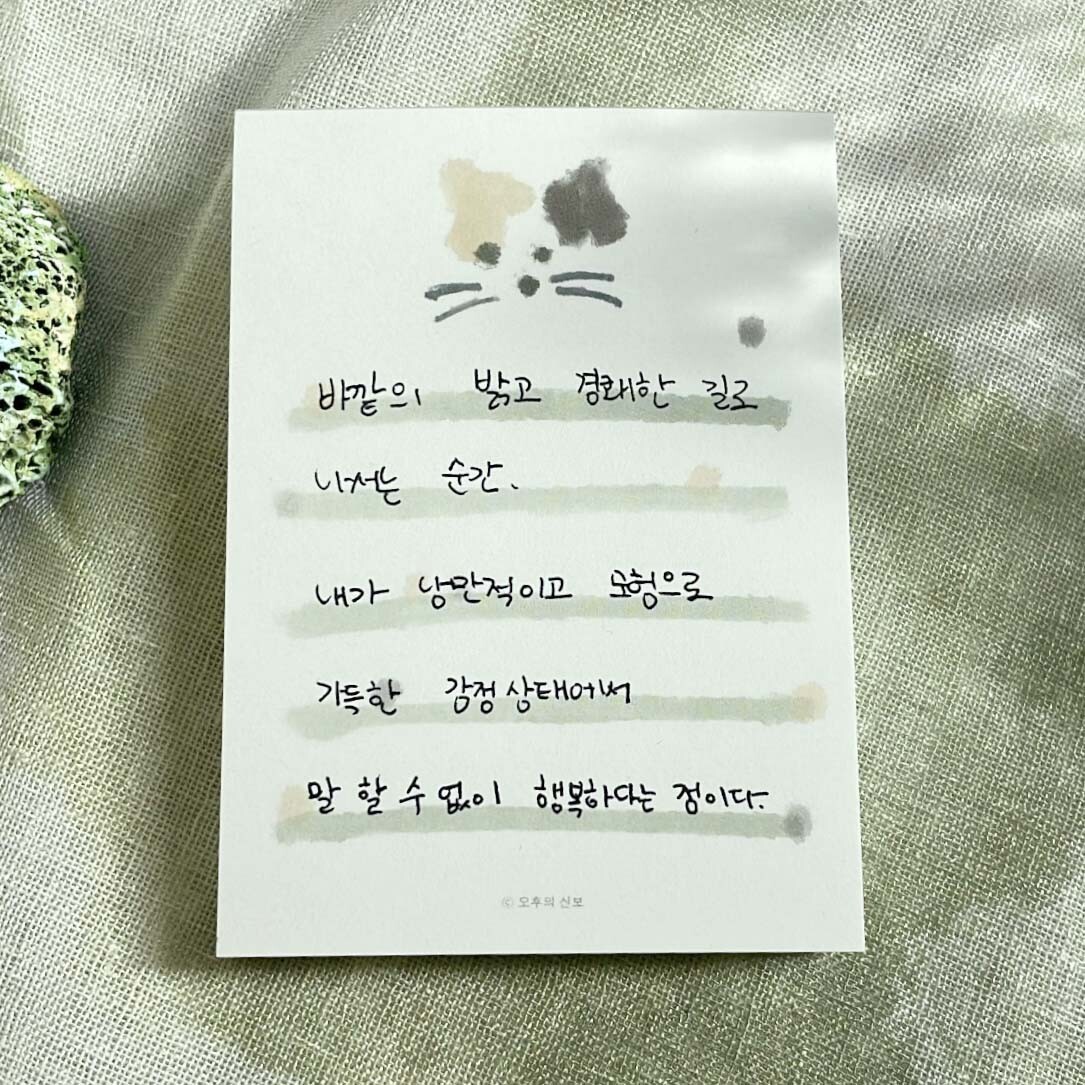 바깥의 밝고 경쾌한 길로
나서는 순간.
내가 낭만적이고 모험으로
가득한 감정 상태에서
말 할 수 없이 행복하다는 점이다.
© 오후의 신보